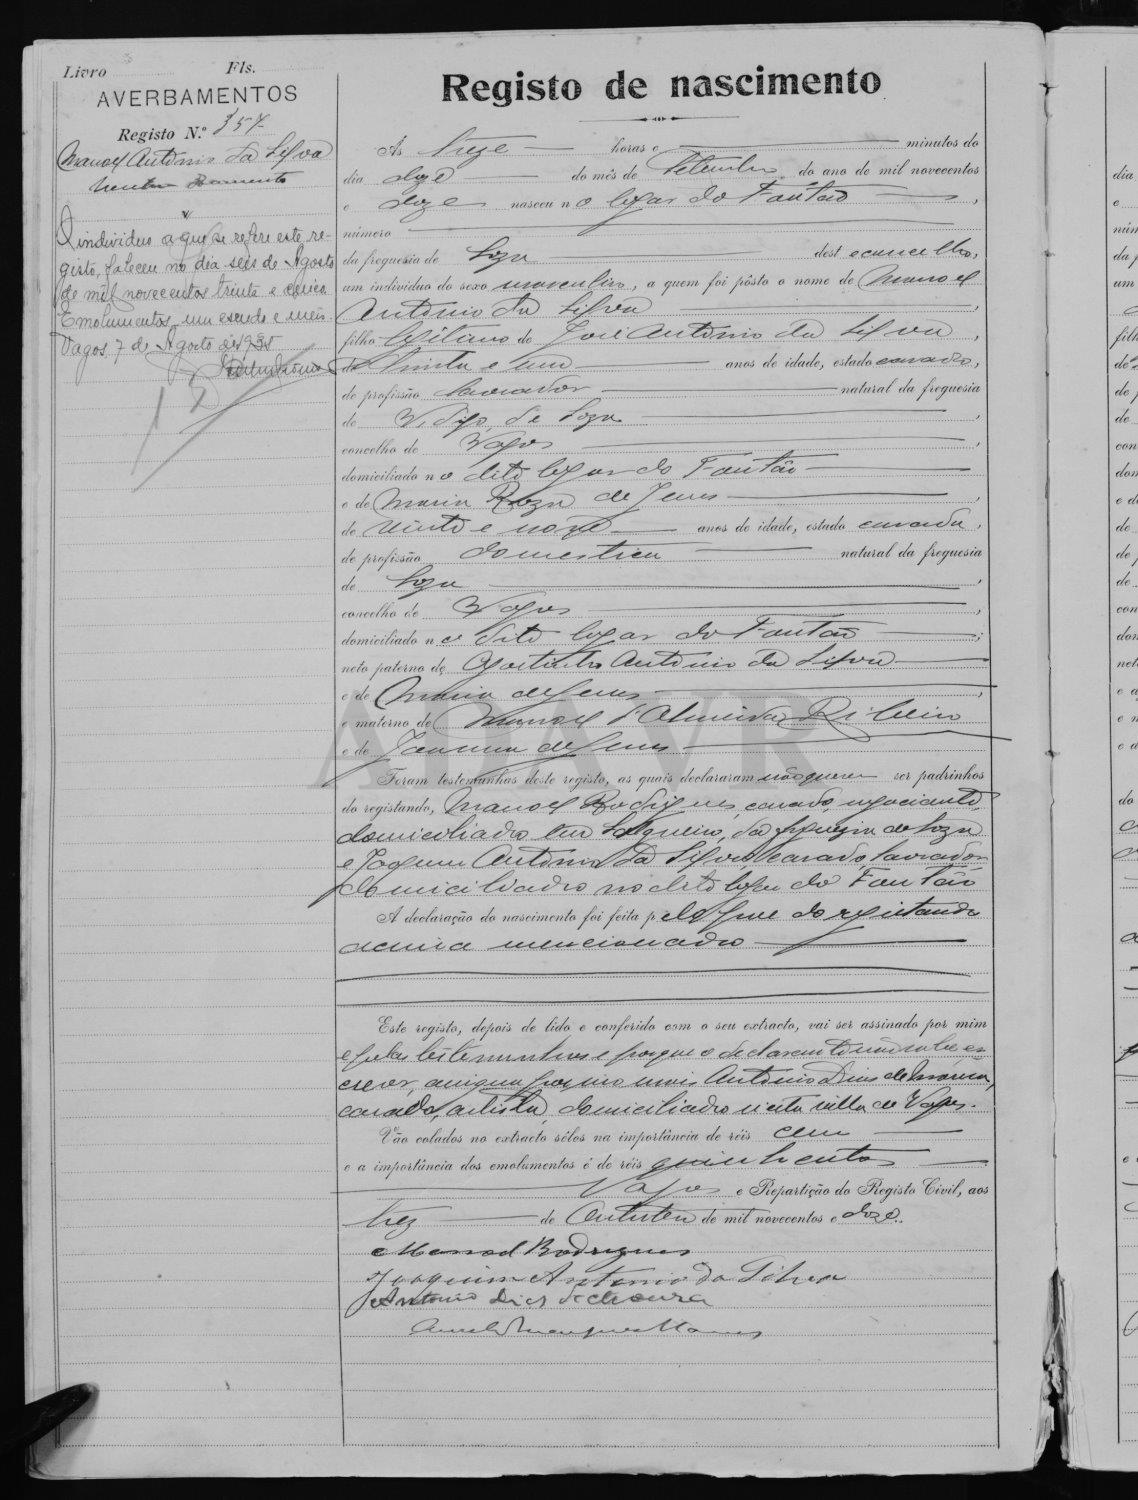 Livro Fls.
AVERBAMENTOS
Registo N.º 357
Manoel Antonio da Silva
O individuo a que se refere este re-
gisto, faleceu no dia seis de Agosto
de mil novecentos trinta e cinco
Emolumentos, um escudo e meio.
Vagos, 7 de Agosto de 1935
Registo de nascimento
Ás treze horas e minutos do
dia doze do mês de Setembro do ano de mil novecentos
e doze nasceu no logar do Fontão,
número
da freguesia de Soza deste concelho,
um indivíduo do sexo masculino, a quem foi pôsto o nome de Manoel
Antonio da Silva,
filho legitimo de José Antonio da Silva,
de trinta e um anos de idade, estado casado,
de profissão lavrador natural da freguesia
de Soza,
concelho de Vagos,
domiciliado no dito logar do Fontão
e de Maria Roza de Jesus,
de vinte e nove anos de idade, estado casada,
de profissão domestica natural da freguesia
de Soza,
concelho de Vagos,
domiciliado no dito logar do Fontão;
neto paterno de Agostinho Antonio da Silva
e de Maria de Jesus,
e materno de Manoel d'Almeida Ribeiro
e de Joanna de Jesus
Foram testemunhas deste registo, as quais declararam não querer ser padrinhos
do registando, Manoel Rodrigues, casado, negociante,
domiciliado em Salgueiro, da freguezia de Soza
e Joaquim Antonio da Silva, casado, lavrador
domiciliado no dito logar do Fontão
A declaração do nascimento foi feita pelo pae do registando
acima mencionado
Este registo, depois de lido e conferido com o seu extracto, vai ser assinado por mim
e pelas testemunhas e porque o declarante não sabe es-
crever, assigna por elle Antonio Dias de Moura,
casado, artista, domiciliado nesta villa de Vagos.
Vão colados no extracto sêlos na importância de réis cem
e a importância dos emolumentos é de réis quinhentos
Vagos e Repartição do Registo Civil, aos
trez de Outubro de mil novecentos e doze.
Manoel Rodrigues
Joaquim Antonio da Silva
Antonio Dias de Moura
ADAVR